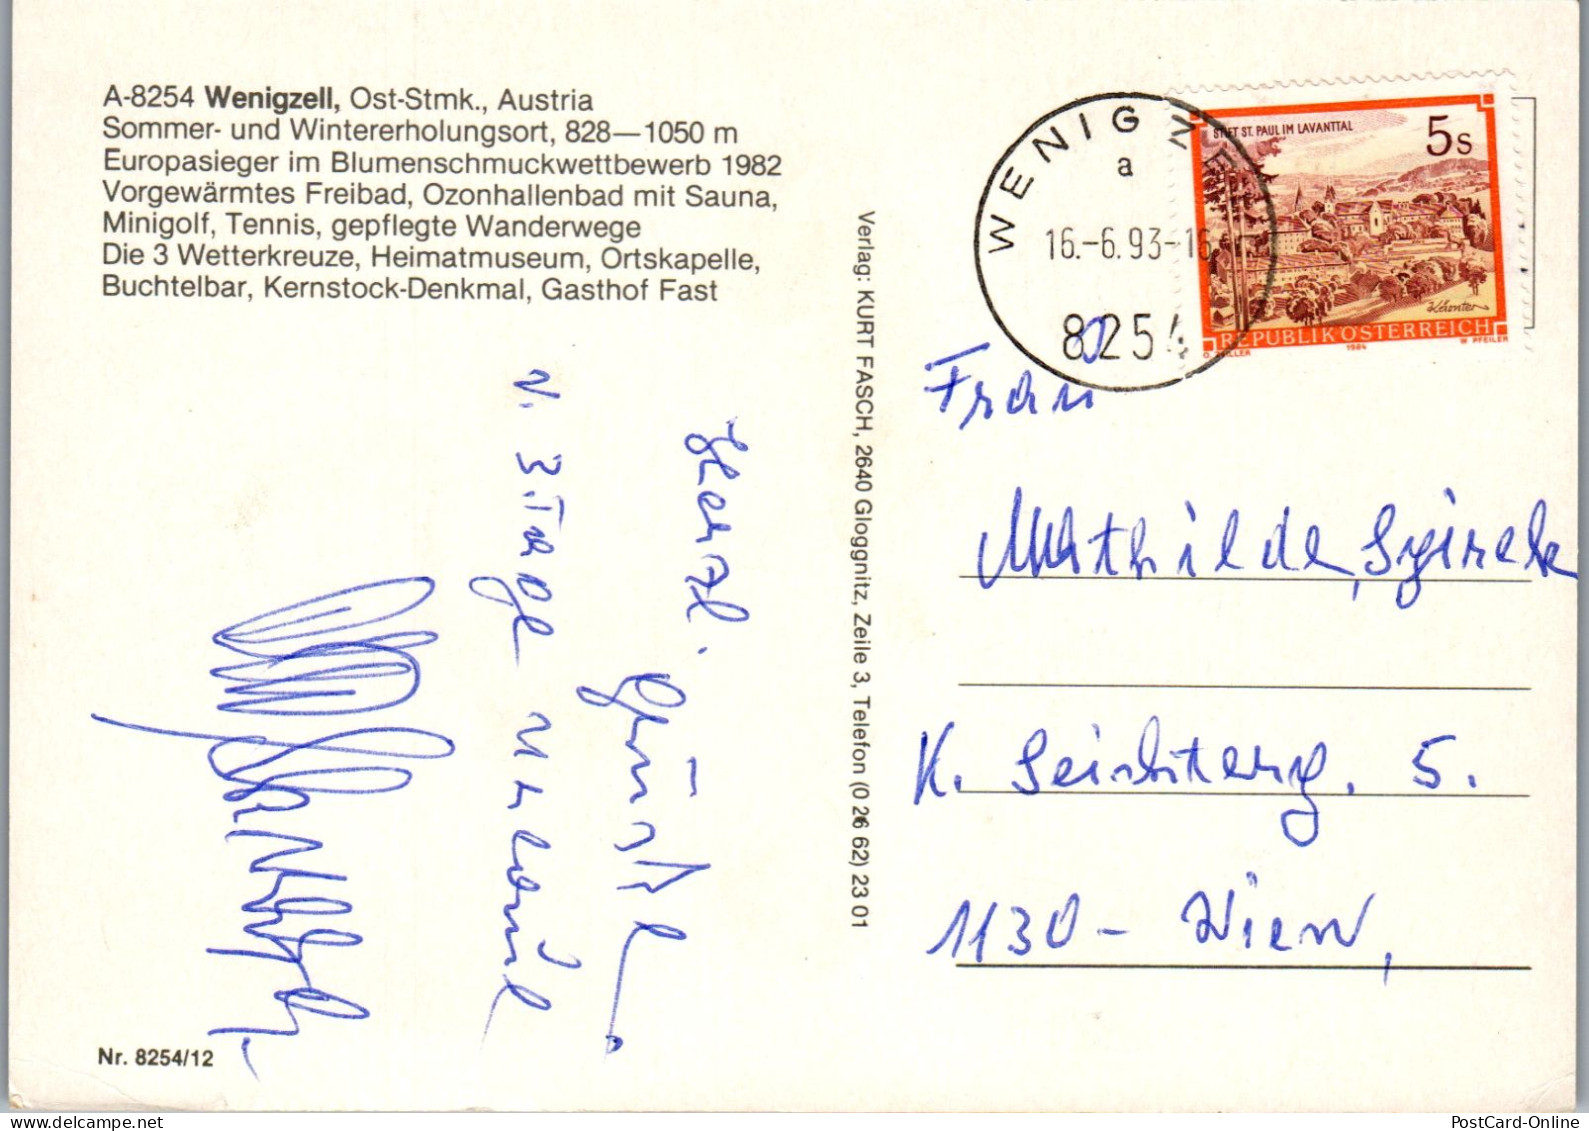 A-8254 Wenigzell, Ost-Stmk., Austria
Sommer- und Wintererholungsort, 828—1050 m
Europasieger im Blumenschmuckwettbewerb 1982
Vorgewärmtes Freibad, Ozonhallenbad mit Sauna,
Minigolf, Tennis, gepflegte Wanderwege
Die 3 Wetterkreuze, Heimatmuseum, Ortskapelle,
Buchtelbar, Kernstock-Denkmal, Gasthof Fast
Herzl.
Grüße
v. 3. Tage Urlaub
Nr. 8254/12
Verlag: KURT FASCH, 2640 Gloggnitz, Zeile 3, Telefon (0 26 62) 23 01
WENIGZ
a
16.-6.93-16
8254
STIFT ST. PAUL IM LAVANTTAL
5 S
REPUBLIK ÖSTERREICH
1984
W. PFEILER
Frau
Mathilde
K.
5.
1130 - Wien,
PostCard-Online